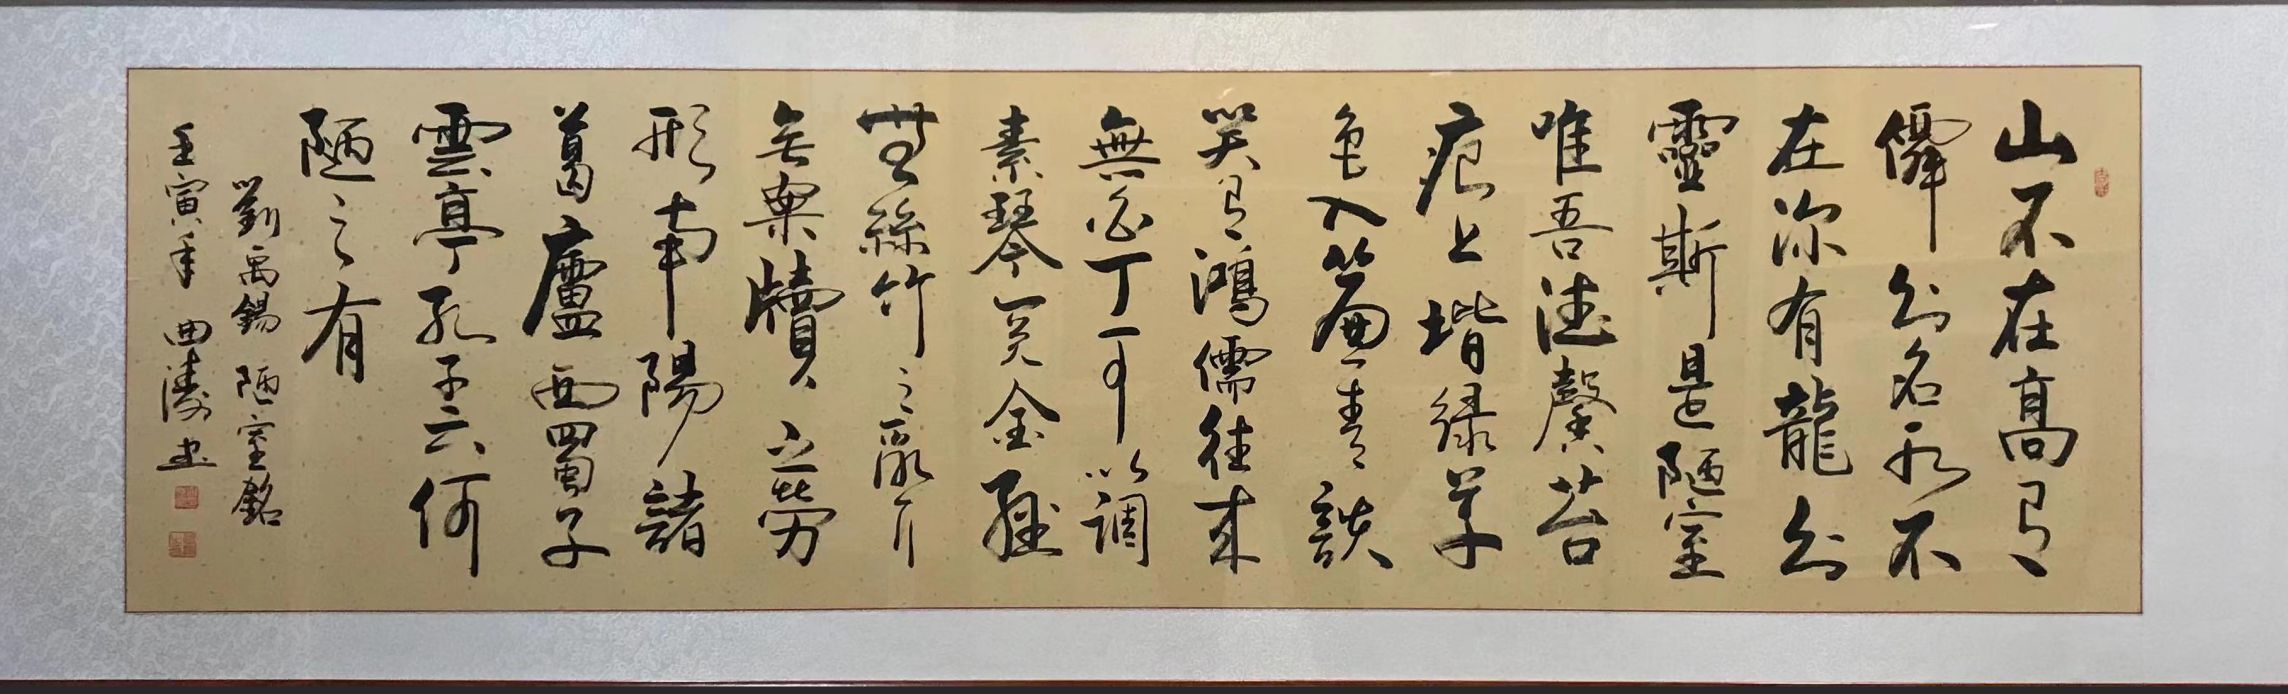 山不在高有
僊則名水不
在深有龍則
靈斯是陋室
唯吾德馨苔
痕上堦緑草
色入簾青談
笑有鴻儒往来
無白丁可以調
素琴閱金經
無絲竹之亂耳
无案牘之勞
形南陽諸
葛廬西蜀子
雲亭孔子云何
陋之有
劉禹錫 陋室銘
壬寅年 曲濤书